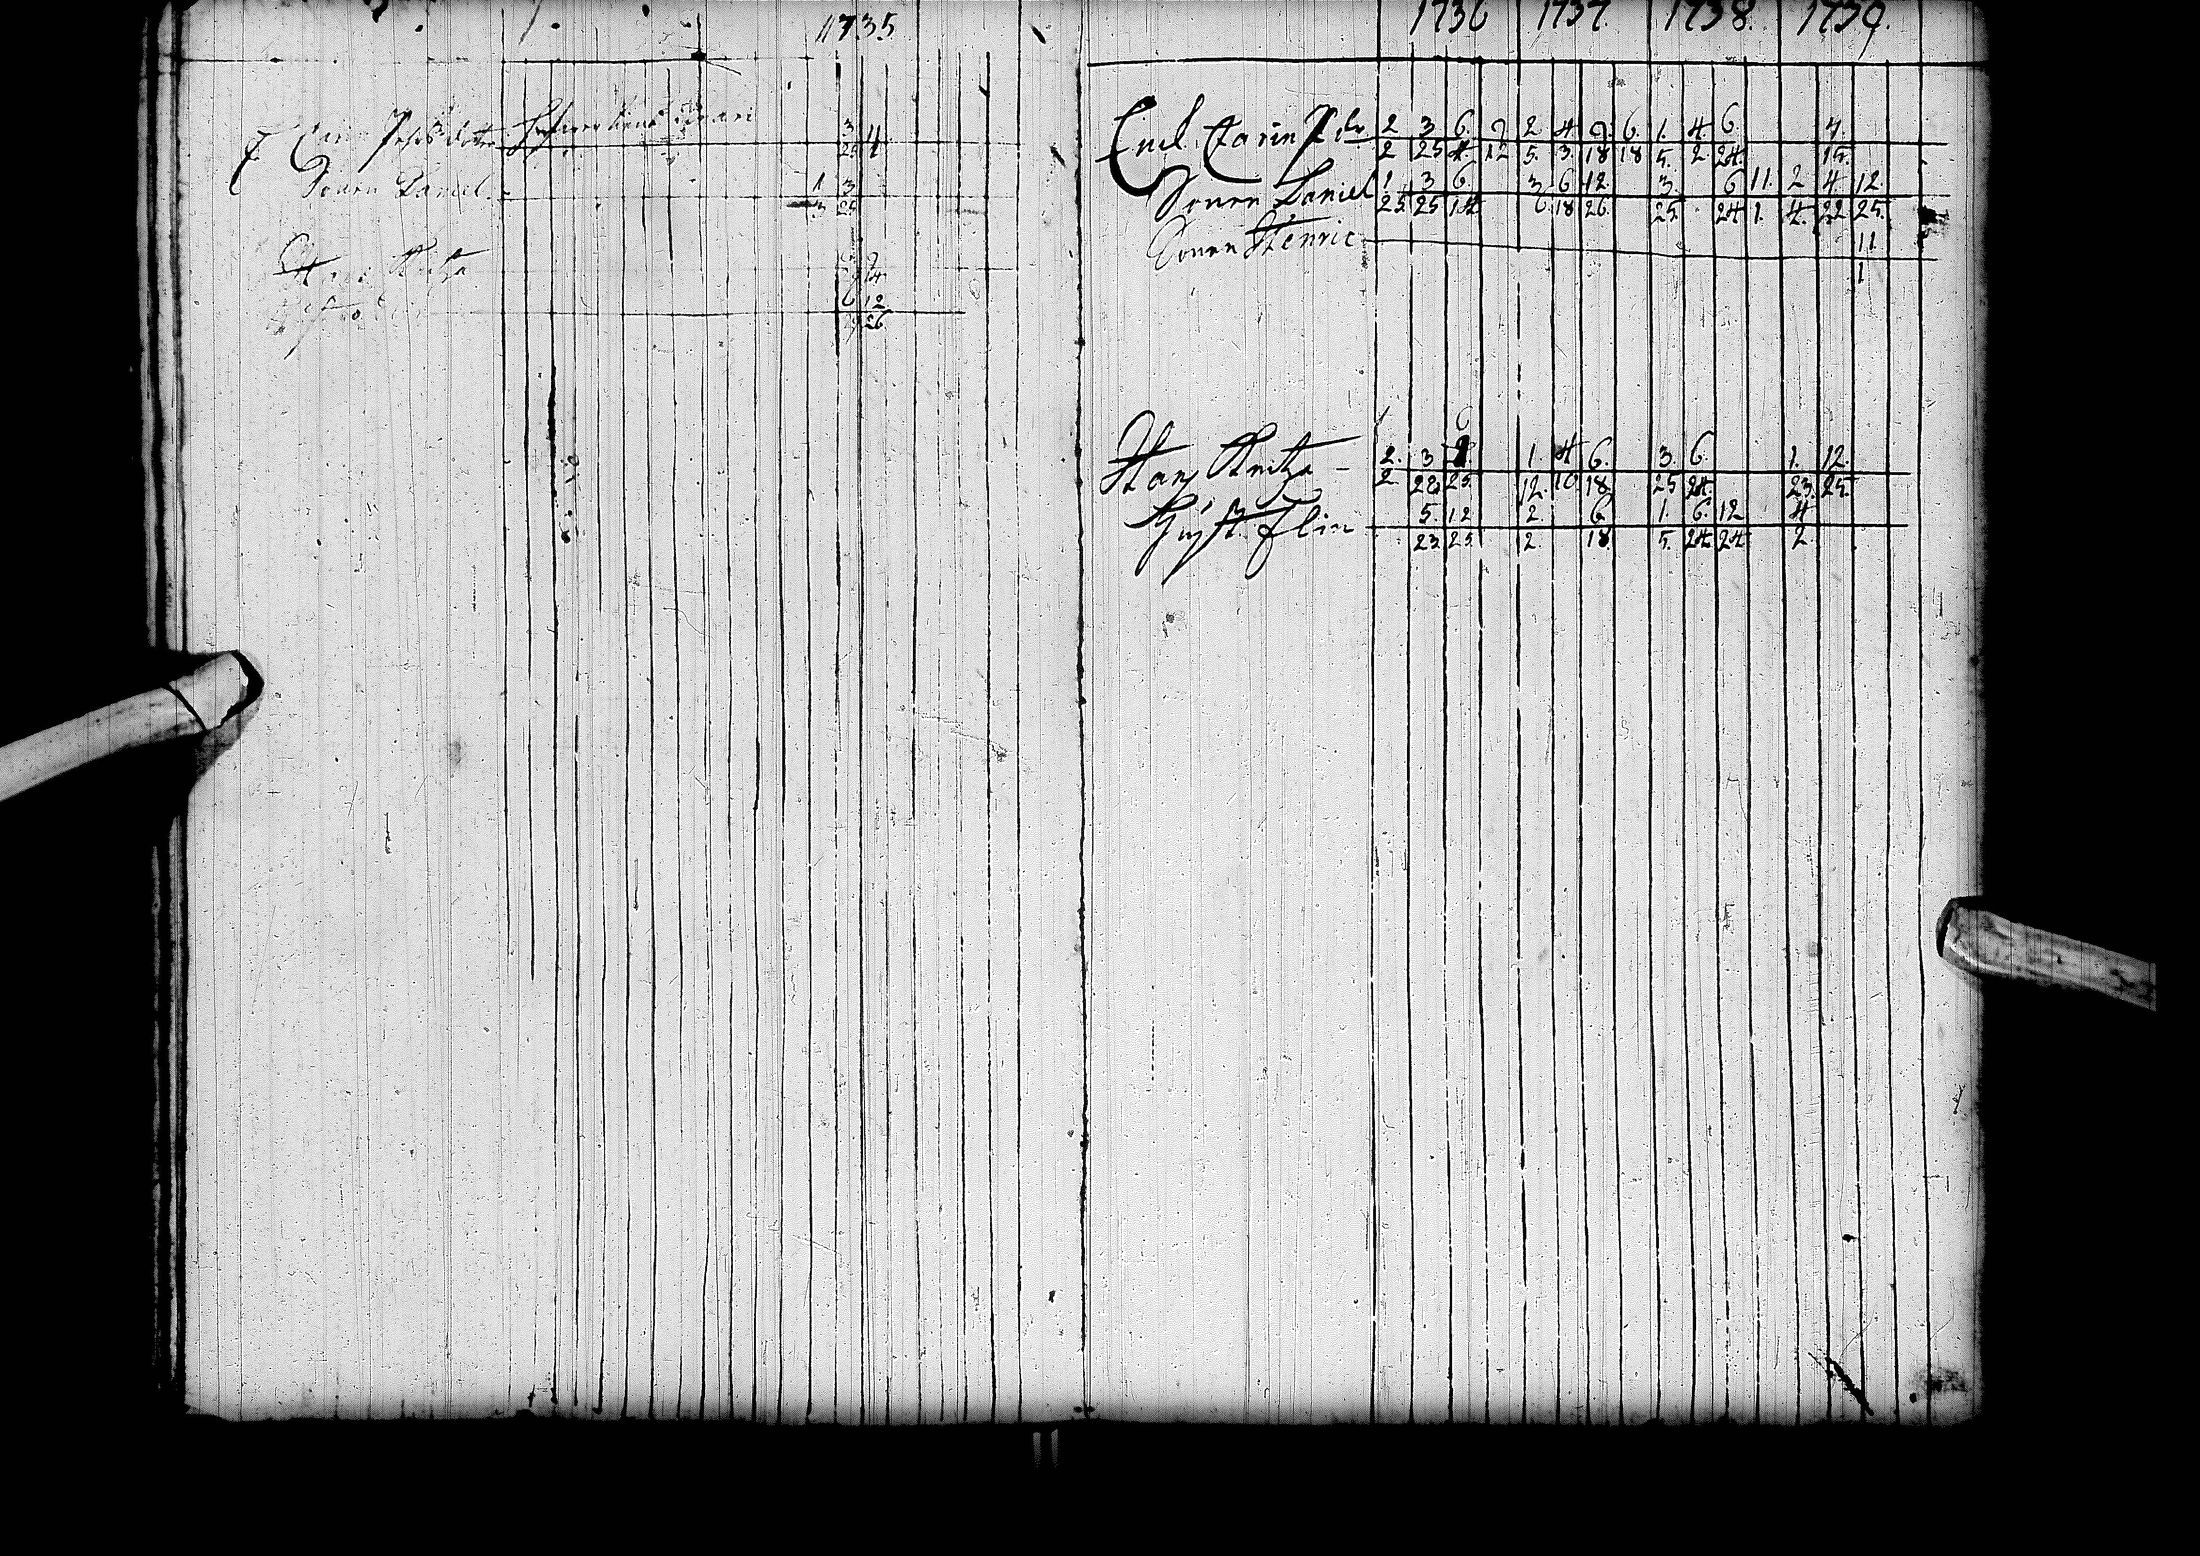 1735
Carin Pehrsdotter 3 4
25 4
Sonen Daniel. 1 3
3 25
Hans Kritza
6 12
19 26
1736 1737. 1738. 1739.
Enck. Carin P dr. 2 3 6. 9 2 4 9. 6. 1. 4 6. 4.
2 25 4. 12 5. 3. 18 18 5. 2 24. 15.
Sonen Daniel 1. 3 6. 3 6 12. 3. 6 11. 2 4. 12.
25 25 14 6 18 26. 25. 24 1. 4. 22 25.
Sonen Henric 11.
1
1 6
Hans Kritza - 2. 3 1. 4 6. 3. 6. 1. 12.
2 28 25. 12. 10 18. 25 24. 23. 25.
Hust. Elin 5. 12 2. 6 1. 6. 12 4
23 25 2. 18. 5. 24 24 2.